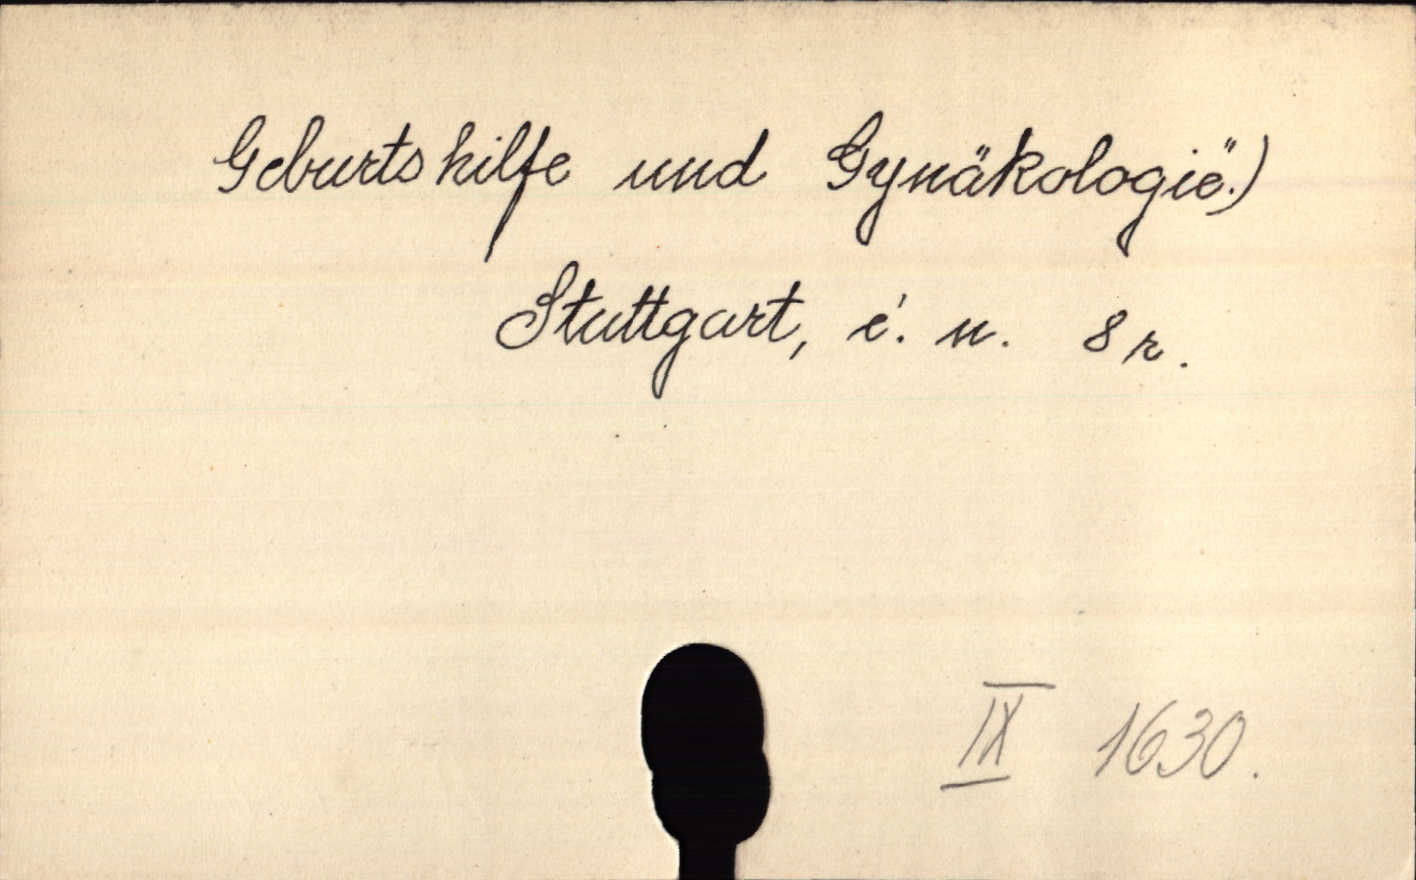 Geburtshilfe und Gynäkologie".)
Stuttgart, é. n. 8r.
IX 1630.